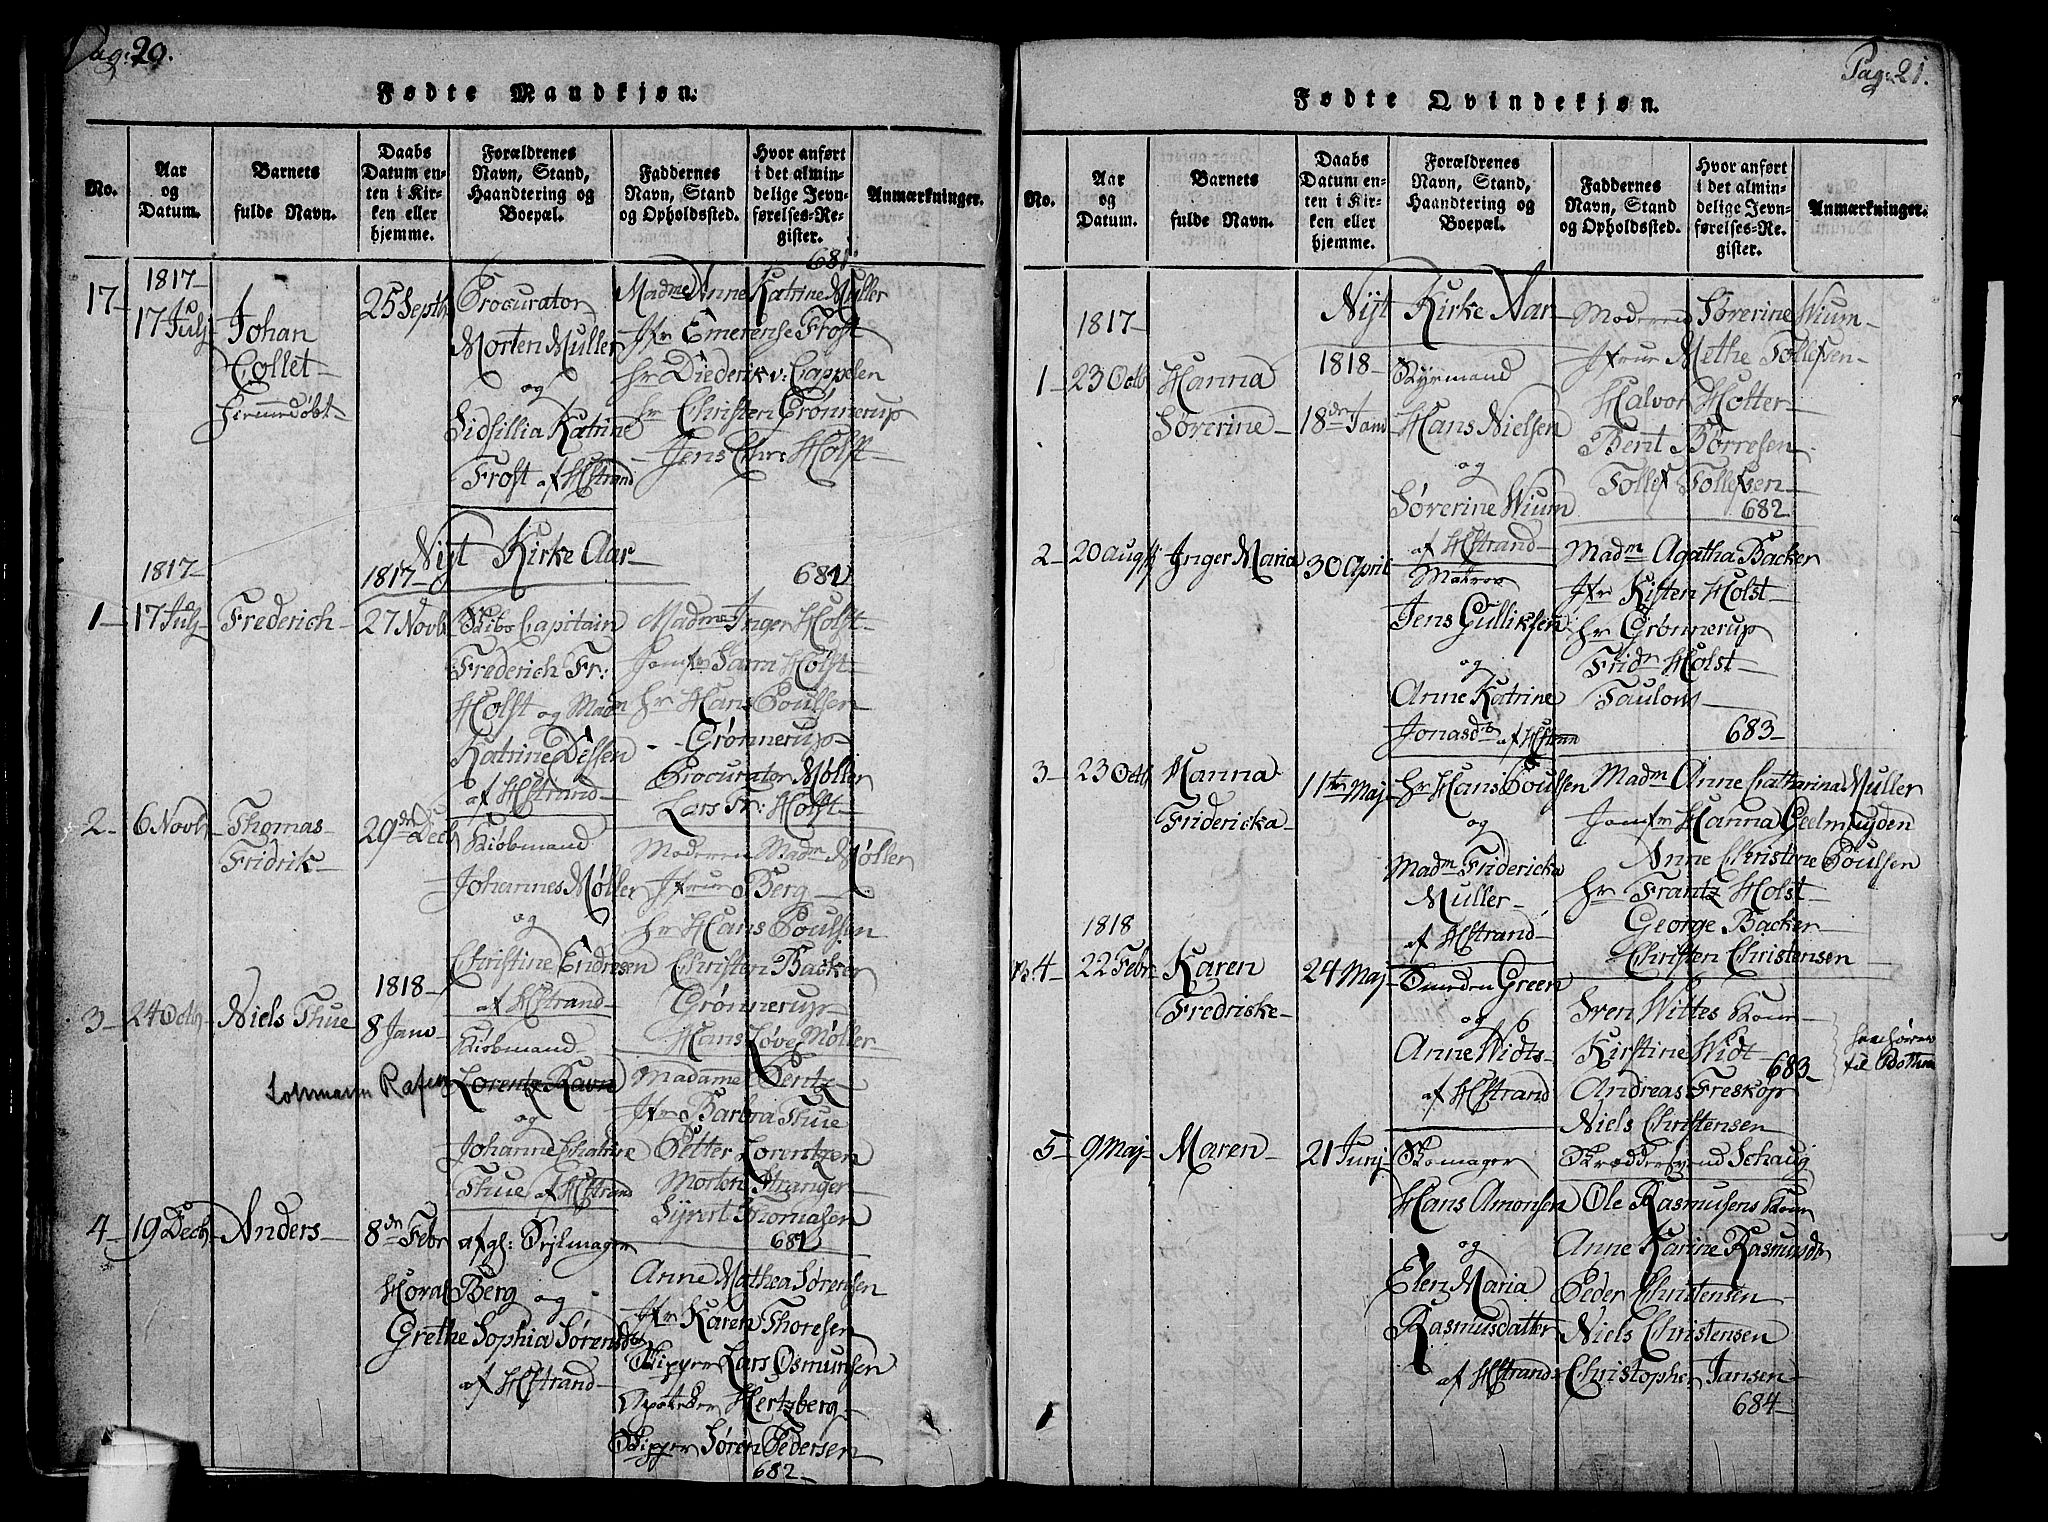 Pag: 20.
Fødte Mandkjøn.
No.
Aar
og
Datum.
Barnets
fulde Navn.
Daabs
Datum en-
ten i Kir-
ken eller
hjemme.
Forældrenes
Navn, Stand,
Haandtering og
Boepæl.
Faddernes
Navn, Stand
og Opholdssted.
Hvor anført
i det almin-
delige Jevn-
førelses-Re-
gister.
Anmærkninger.
17-
1817-
17 July
Johan
Collet
hiemmedøbt-
25 Septb
Procurator
Morten Muller
og
Sidsillia Katrine
Frost af HStrand
681
Madme Anne Katrine Muller
Jfr Emerense Frost
hr Diederik v: Cappelen
hr Christen Grönnerup
Jens Chr: Holst
Nÿt Kirke Aar-
1-
1817-
17 July
Frederich-
1817-
27 Novb
Skibs Capitain
Frederich Fr:
Holst og Madm
Katrine Dessen
af HStrand-
681
Madme Inger Holst-
Jomfr Holst-
hr Hans Poulsen
Grönnerup-
Procurator Møller
Lars Fr: Holst-
2-
6 Novb
Thomas
Fridrik-
29de Decb
Kiöbmand
Johannes Møller
og
Christine Endresen
af HStrand-
Moderen Madm Møller
Jfrue Berg-
hr Hans Poulsen
Christen Backer
Grönnerup
Hans Løve Møller
3-
24 Octb
Niels Thue
1818-
8 Janv
Kiöbmand
Lorentz Ravn
og
Johanne Chatrine
Thue af HStrand
Madamme Bentz-
Jfr Barbra Thue
Petter Lorentzen
Morten Stranger
Syvert Thomasen
681
4-
19 Decb
Anders-
8de Febr
afgl: Sejlmager
Berg og
Grethe Sophia Sørensdr
af HStrand-
Anne Mathea Sørensen
Jfr Karen Thoresen
Skipper Lars Osmunsen
Apoteker Hertzberg-
Skipper Søren Pedersen
682-
Pag: 21.
Fødte Qvindekjøn.
No.
Aar
og
Datum.
Barnets
fulde Navn.
Daabs
Datum en-
ten i Kir-
ken eller
hjemme.
Forældrenes
Navn, Stand,
Haandtering og
Boepæl.
Faddernes
Navn, Stand
og Opholdssted.
Hvor anført
i det almin-
delige Jevn-
førelses-Re-
gister.
Anmærkninger.
Nÿt Kirke Aar-
1-
1817-
23 Octb
Hanna
Sørerine-
1818-
18de Janv
Styrmand
Hans Nielsen
og
Sørerine Wium
af HStrand-
Moderen Sørerine Wium-
Jfrue Methe Tollefsen-
Halvor Holter-
Bent Børresen
Tollef Tollefsen-
682-
2-
20 Augst
Inger Maria
30 April
Matros
Jens Gulliksen
og
Anne Katrine
Jonasdtr af HStrand
Madm Agatha Backer
Jfr Kisten Holst-
hr Grönnerup
Fridr Holst-
Faulom-
683-
3-
23 Octb
Hanna
Fridericka-
11te Maj-
hr Hans Poulsen
og
Madm Fridericka
Muller-
af HStrand-
Madm Anne Chatharina Muller
Jomfr Hanna Geelmuyden
Anne Christine Poulsen
hr Frantz Holst-
George Backer-
Christen Christensen
4-
1818
22 Febr
Karen
Fredriske-
24 Maj-
Smeden Green
og
Anne Widts-
af HStrand
Iven Wittes Kone-
Kirstine Widt
683-
Andreas Freskop
Niels Christensen
5-
9 Maj-
Maren-
21 Junj-
Skomager
Hans Amonsen
og
Elen Maria
Rasmusdatter
af HStrand-
Skrædder Schaug
Ole Rasmusens Kone
Anne Karine Rasmusdtr
Peder Christensen-
Niels Christensen
Christopher Jansen-
684-